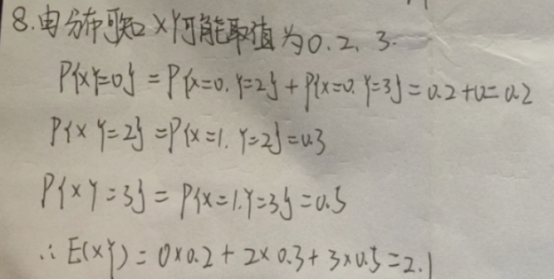 8.由分布可知XY可能取值为0.2、3.
P{XY=0} = P{X=0.Y=2} + P{X=0.Y=3} = 0.2+0=0.2
P{XY=2} = P{X=1.Y=2} = 0.3
P{XY=3} = P{X=1.Y=3} = 0.5
∴ E(XY) = 0×0.2 + 2×0.3 + 3×0.5 = 2.1